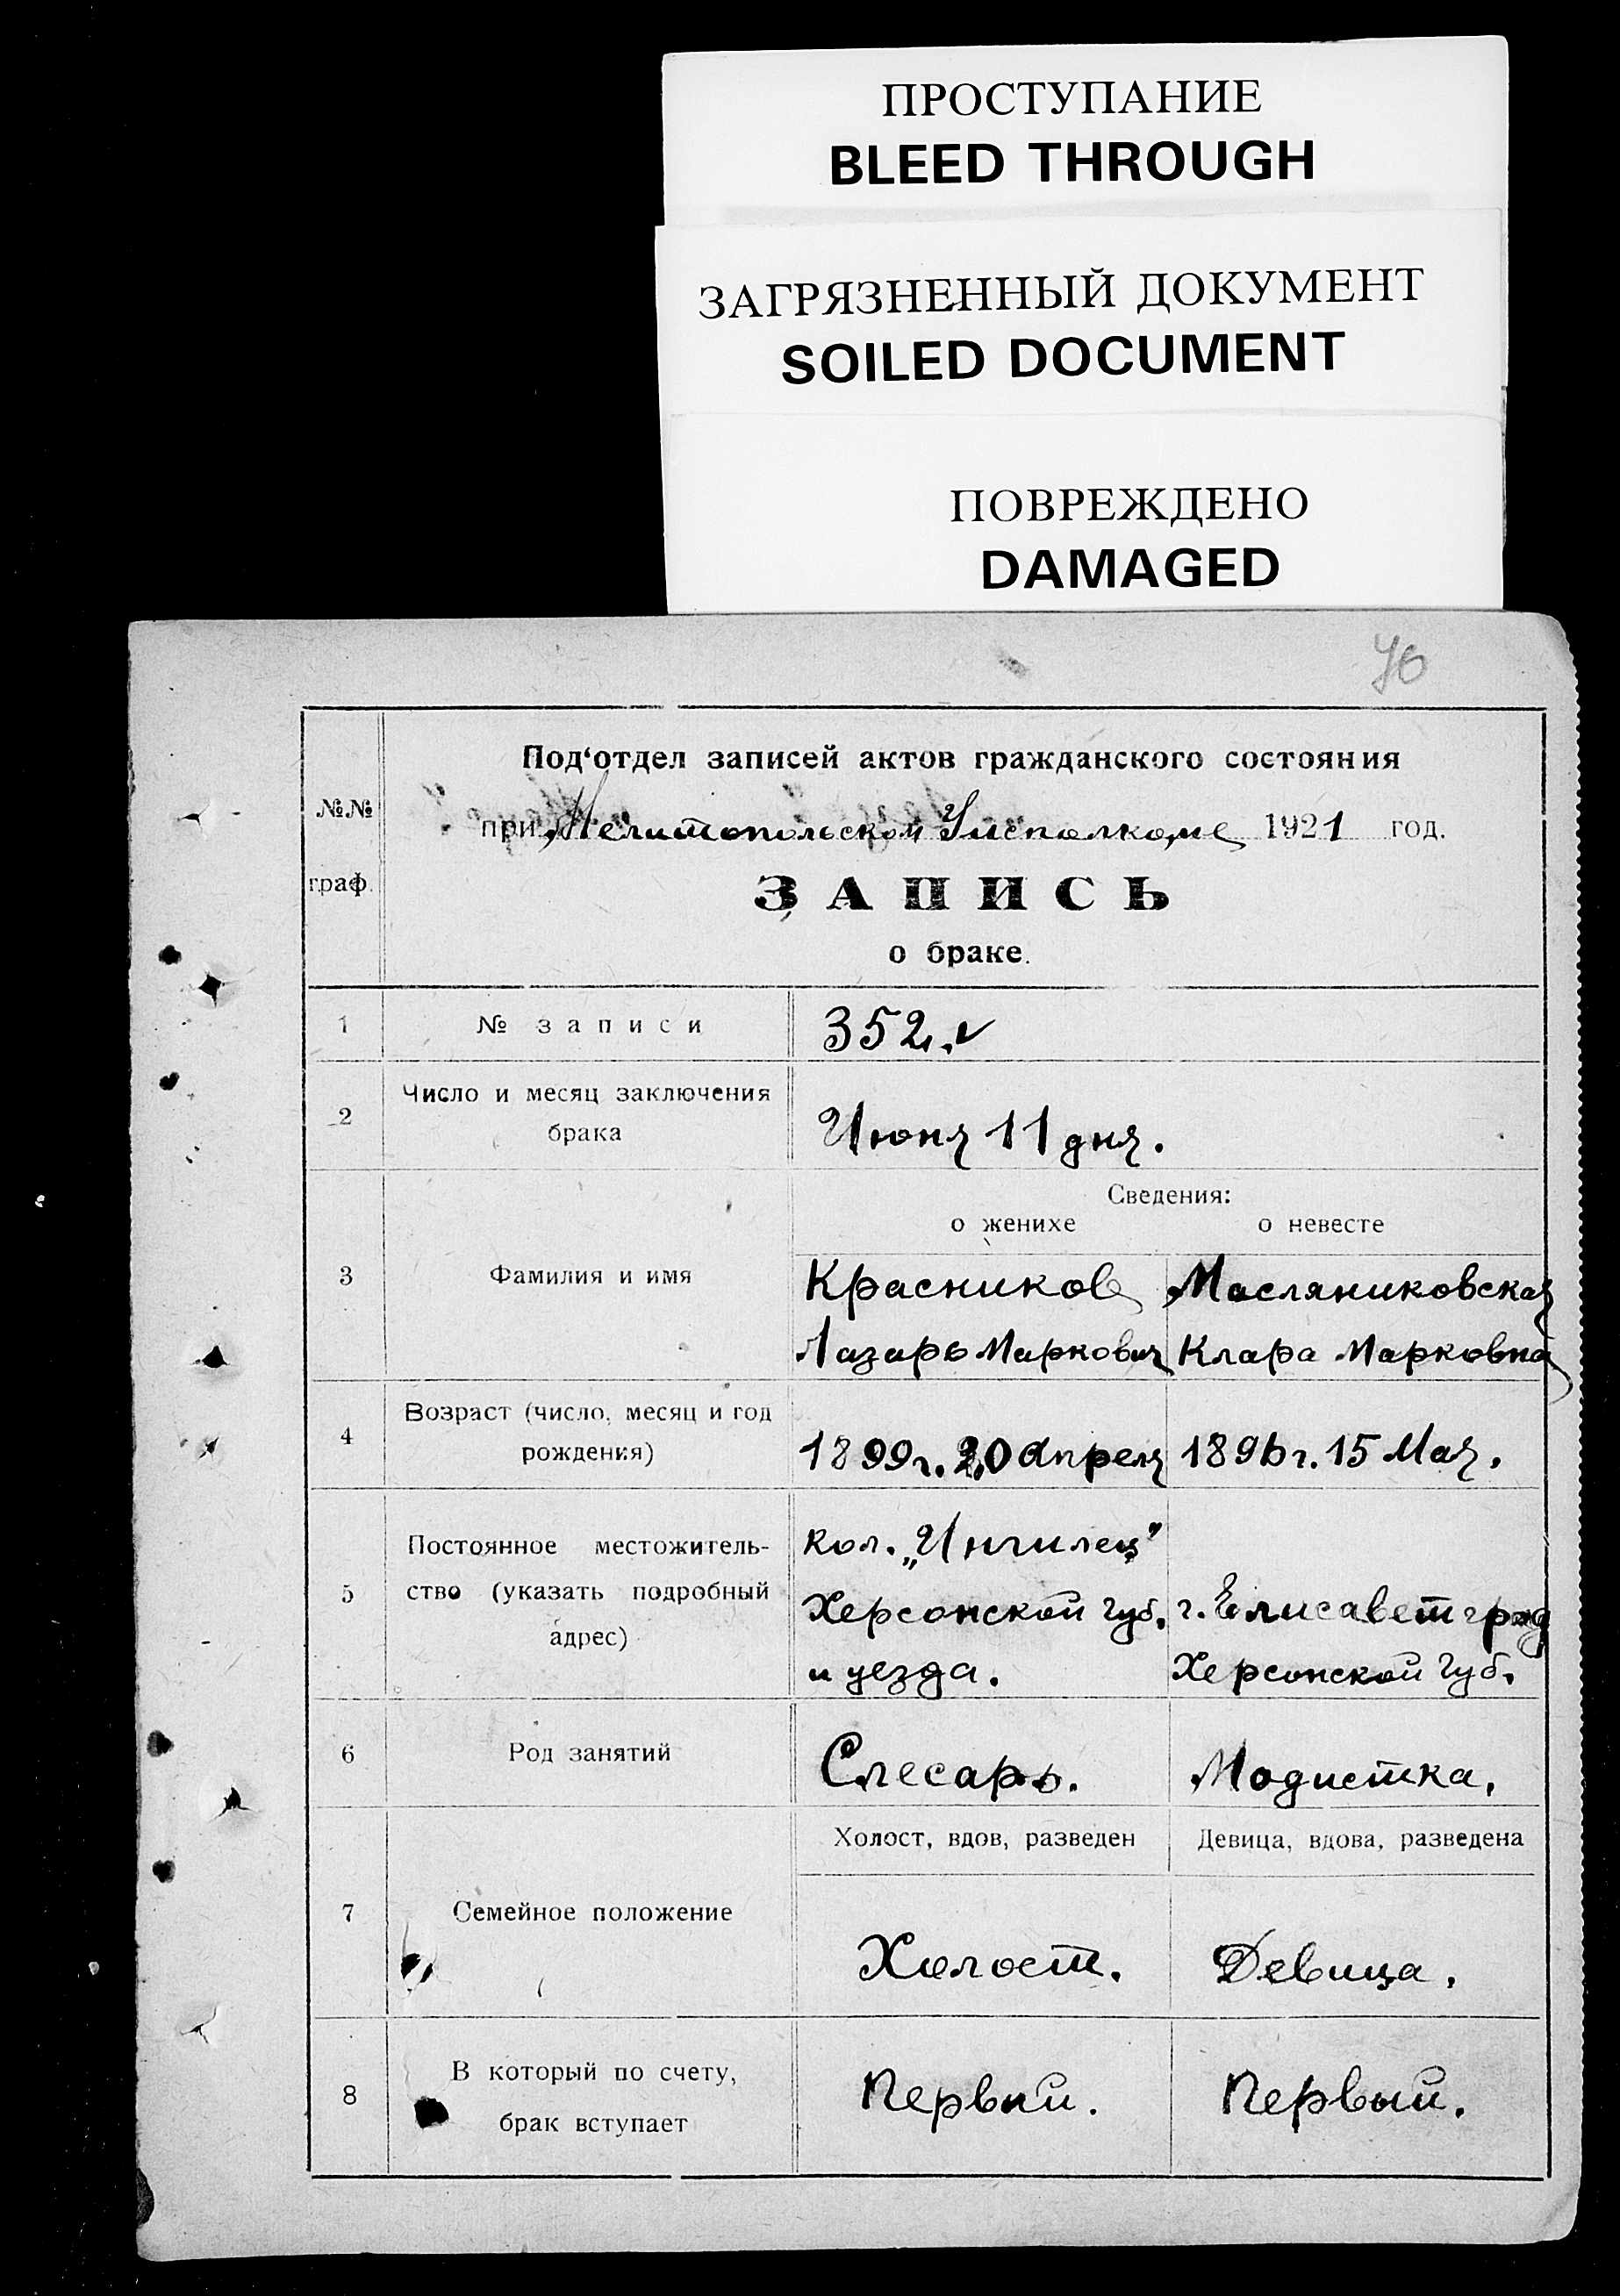 ПРОСТУПАНИЕ
BLEED THROUGH
ЗАГРЯЗНЕННЫЙ ДОКУМЕНТ
SOILED DOCUMENT
ПОВРЕЖДЕНО
DAMAGED
№№
граф.
Под‘отдел записей актов гражданского состояния
при Мелитопольском Уисполкоме 1921 год.
ЗАПИСЬ
о браке.
1 № записи 352.
2 Число и месяц заключения
брака
Июня 11 дня.
Сведения:
о женихе о невесте
3 Фамилия и имя
Красников Масляниковская
Лазарь Маркович Клара Марковна
4 Возраст (число, месяц и год
рождения)
1899 г. 20 Апреля 1896 г. 15 Мая.
5 Постоянное местожитель-
ство (указать подробный
адрес)
кол. „Ингилец"
Херсонской губ. г. Елисаветград
и уезда. Херсонской губ.
6 Род занятий Слесарь. Модистка.
Холост, вдов, разведен Девица, вдова, разведена
7 Семейное положение
Холост. Девица.
8 В который по счету,
брак вступает
Первый. Первый.